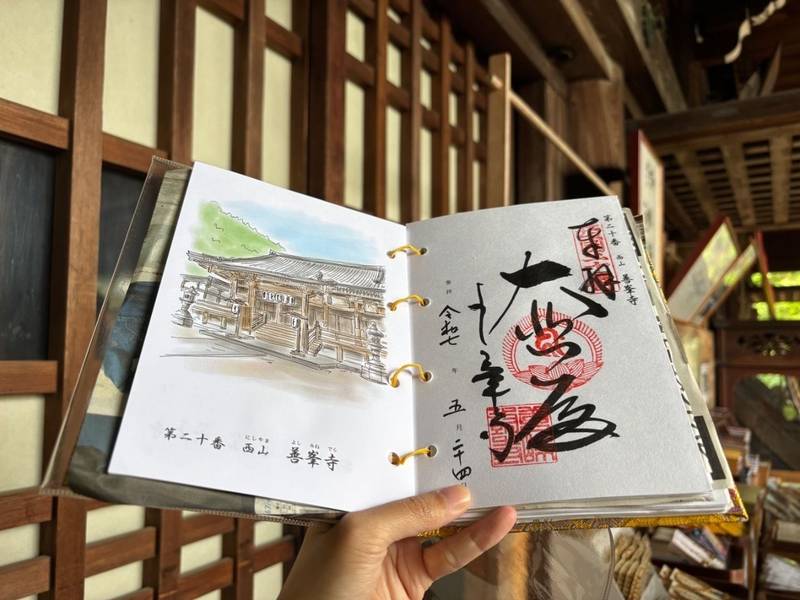 にしやま よしみねでら
第二十番 西山 善峯寺
第二十番 西山 善峯寺
奉拝
大悲殿
令和七年五月二十四